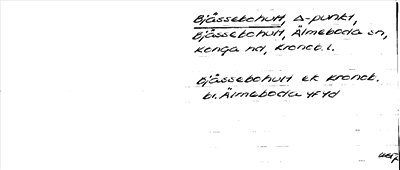 Bjässebohult, Δ-punkt,
Bjässebohult, Älmeboda sn,
Konga hd, Kronob. l.
Bjässebohult ek Kronob.
bl. Älmeboda 4f4d